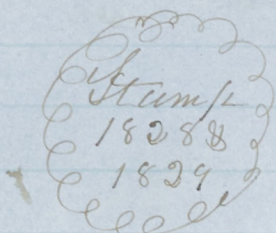 Stamp
1828 &
1829